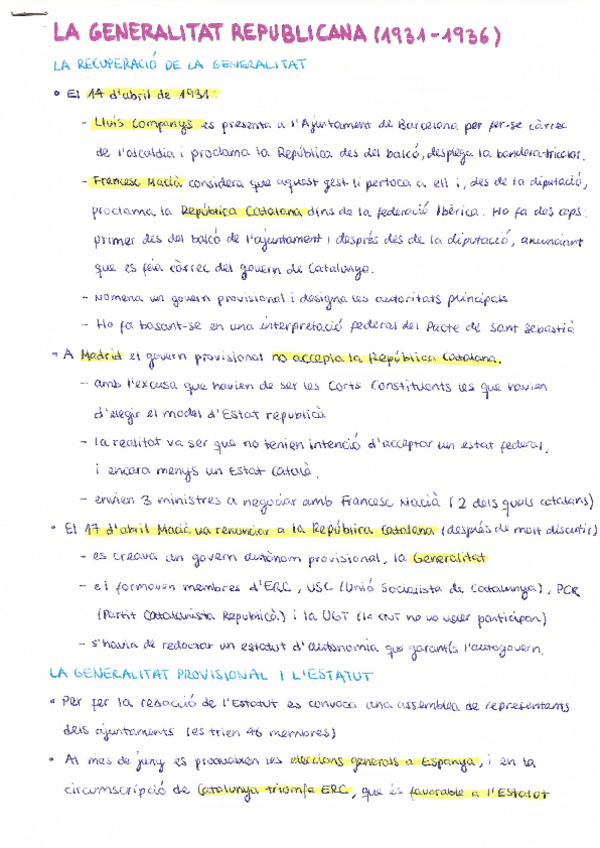 LA GENERALITAT REPUBLICANA (1931-1936)
LA RECUPERACIÓ DE LA GENERALITAT
• El 14 d'abril de 1931:
- Lluís Companys es presenta a l'Ajuntament de Barcelona per fer-se càrrec
de l'alcaldia i proclama la República des del balcó, desplega la bandera tricolor.
- Francesc Macià considera que aquest gest li pertoca a ell i, des de la diputació,
proclama la República Catalana dins de la federació Ibèrica. Ho fa dos cops:
primer des del balcó de l'ajuntament i després des de la diputació, anunciant
que es feia càrrec del govern de Catalunya.
- Nomena un govern provisional i designa les autoritats principals
- Ho fa basant-se en una interpretació federal del Pacte de Sant Sebastià
• A Madrid el govern provisional no accepta la República Catalana.
- amb l'excusa que havien de ser les Corts Constituents les que havien
d'elegir el model d'Estat republicà
- la realitat va ser que no tenien intenció d'acceptar un estat federal,
i encara menys un Estat Català.
- envien 3 ministres a negociar amb Francesc Macià (2 dels quals catalans)
• El 17 d'abril Macià va renunciar a la República Catalana (després de molt discutir)
- es creava un govern autònom provisional, la Generalitat
- el formaven membres d'ERC, USC (Unió Socialista de Catalunya), PCR
(Partit Catalanista Republicà) i la UGT (la CNT no va voler participar)
- s'havia de redactar un estatut d'autonomia que garantís l'autogovern.
LA GENERALITAT PROVISIONAL I L'ESTATUT
• Per fer la redacció de l'Estatut es convoca una assemblea de representants
dels ajuntaments (es trien 46 membres)
• Al mes de juny es produeixen les eleccions generals a Espanya, i en la
circumscripció de Catalunya triomfa ERC, que és favorable a l'Estatut